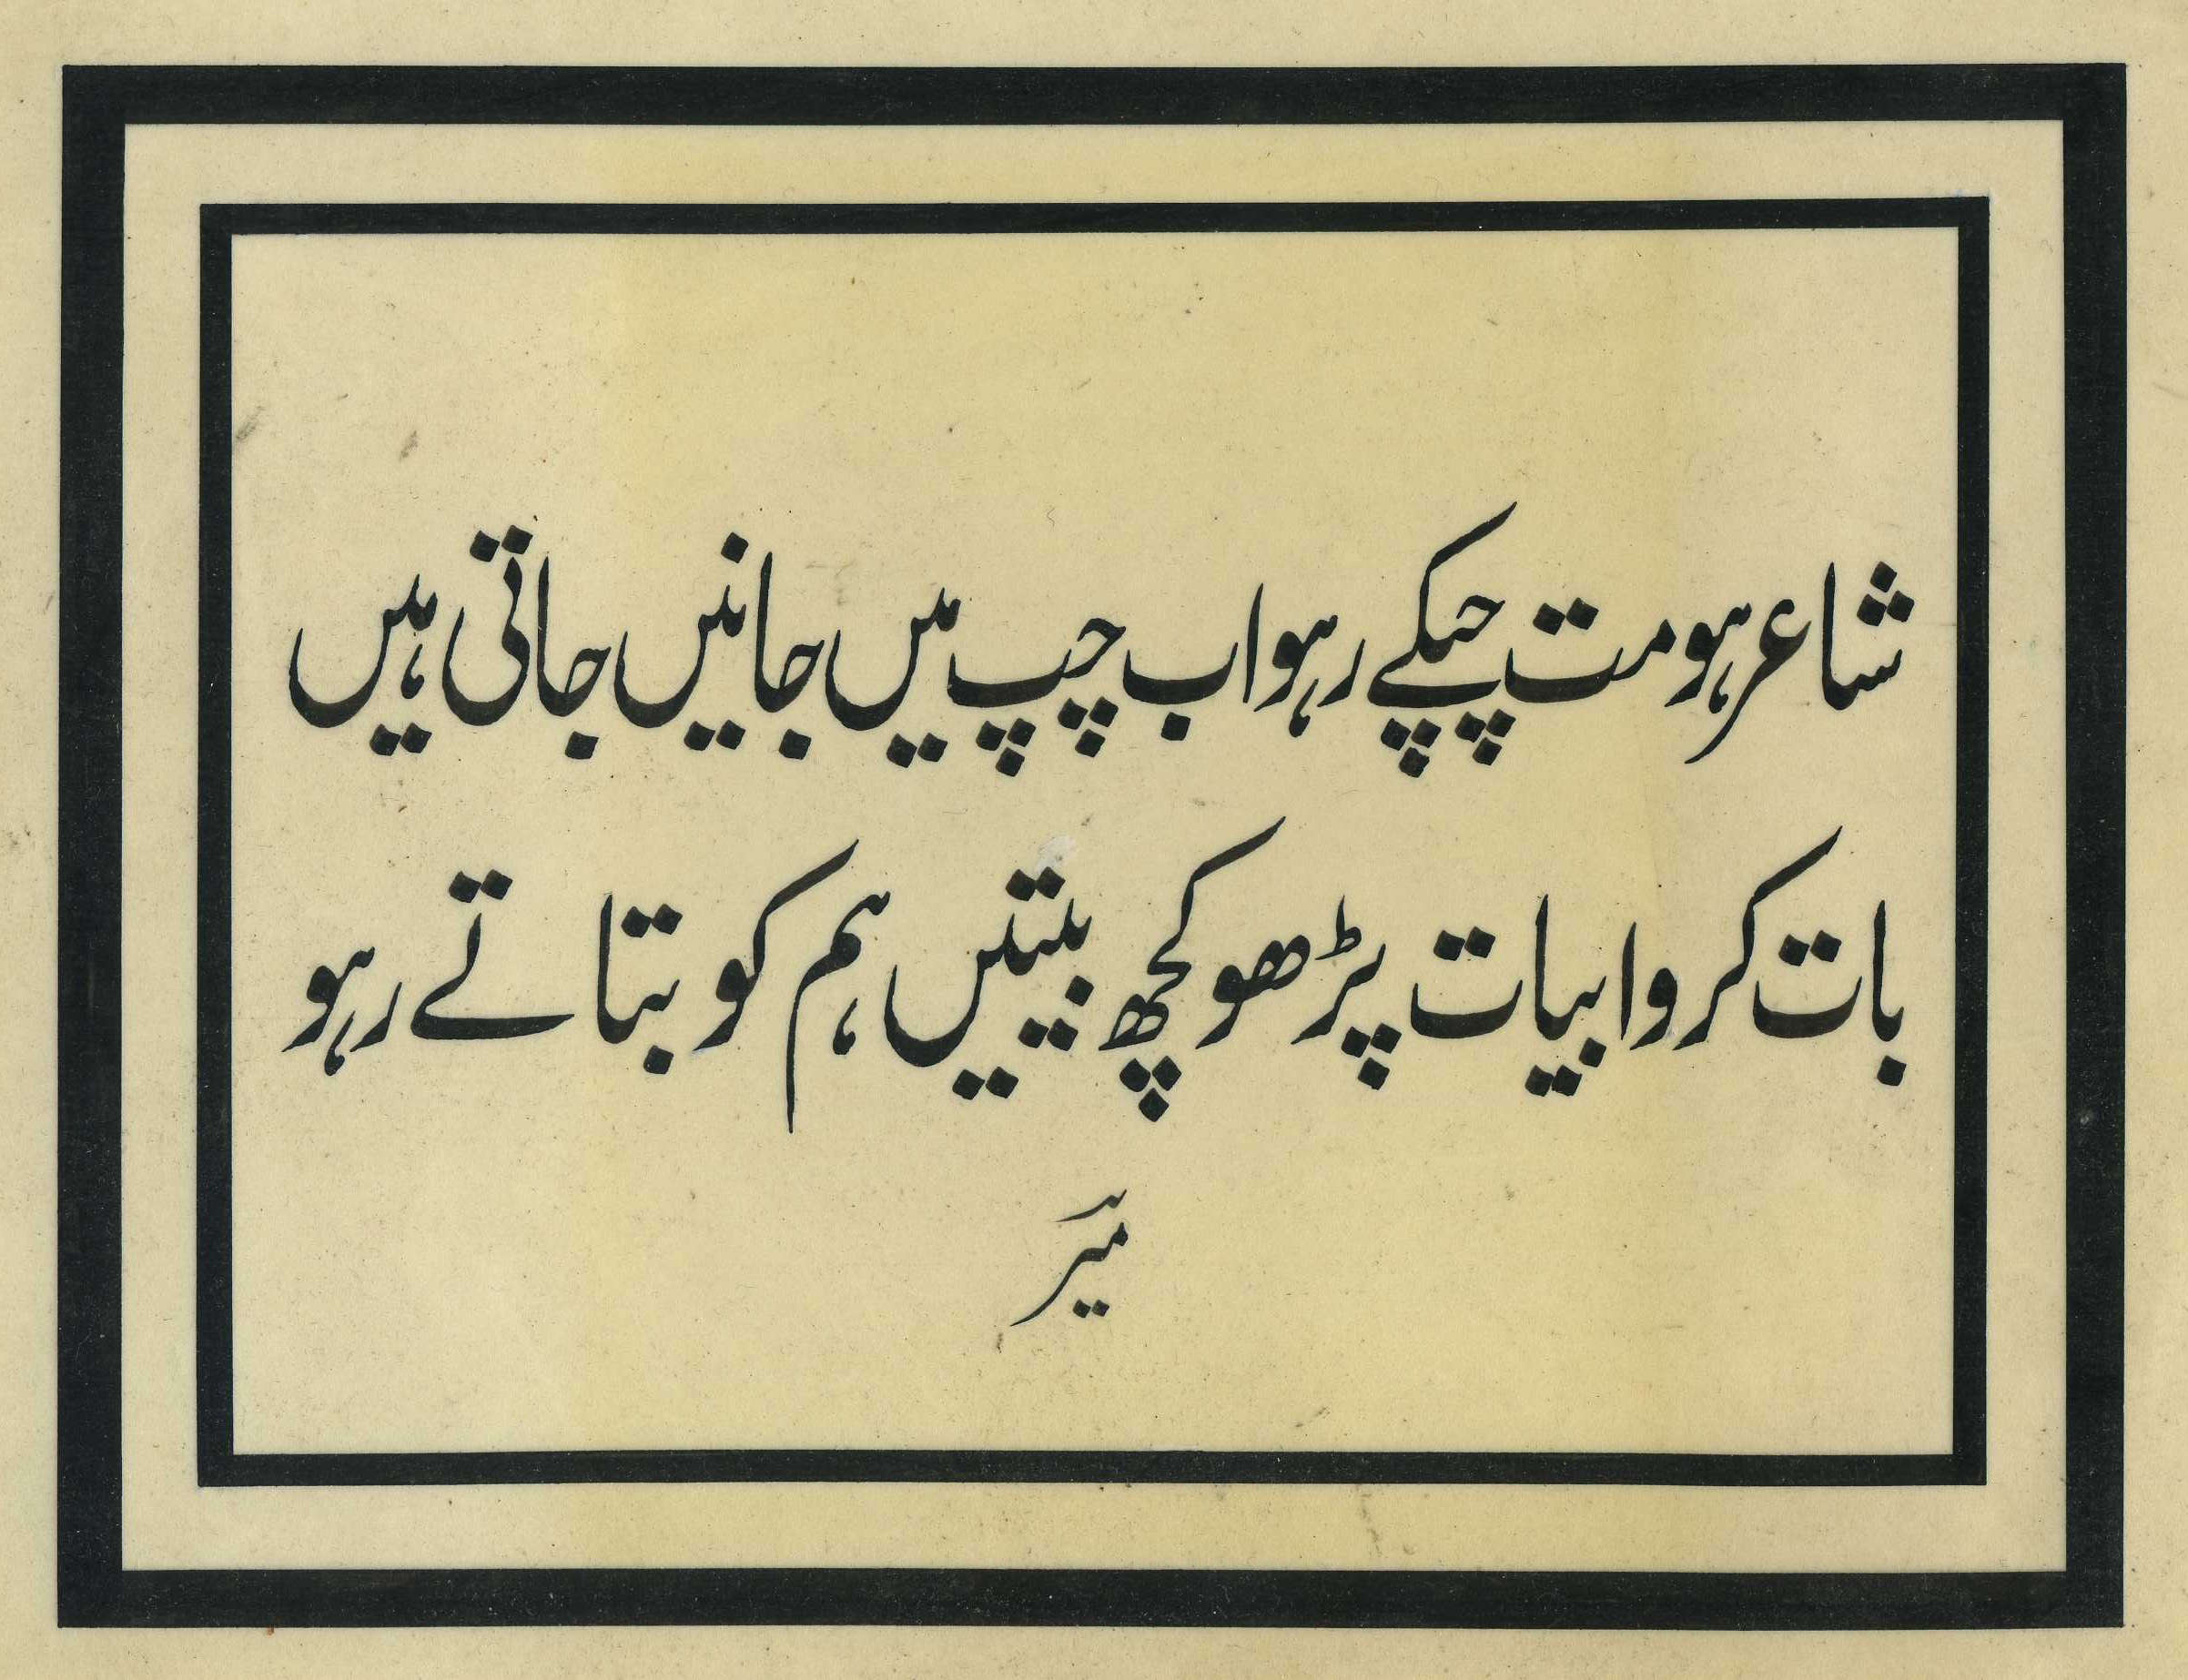 شاعر ہو مت چپکے رہو اب چپ میں جانیں جاتی ہیں
بات کرو ابیات پڑھو کچھ بیتیں ہم کو بتاتے رہو
میرؔ